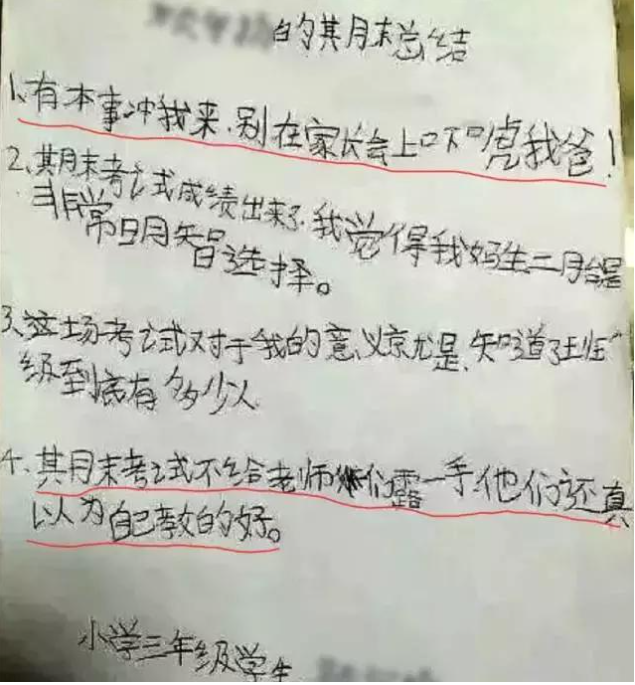 的其月末总结
1、有本事冲我来,别在家长会上口下口虎我爸!
2、其月末考试成绩出来了.我觉得我妈生二月台是
非常日月智选择。
3、这场考试对于我的意义京尤是,知道了班
级到底有多少人
4、其月末考试不给老师们露一手,他们还真
以为自己教的好。
小学三年级学生